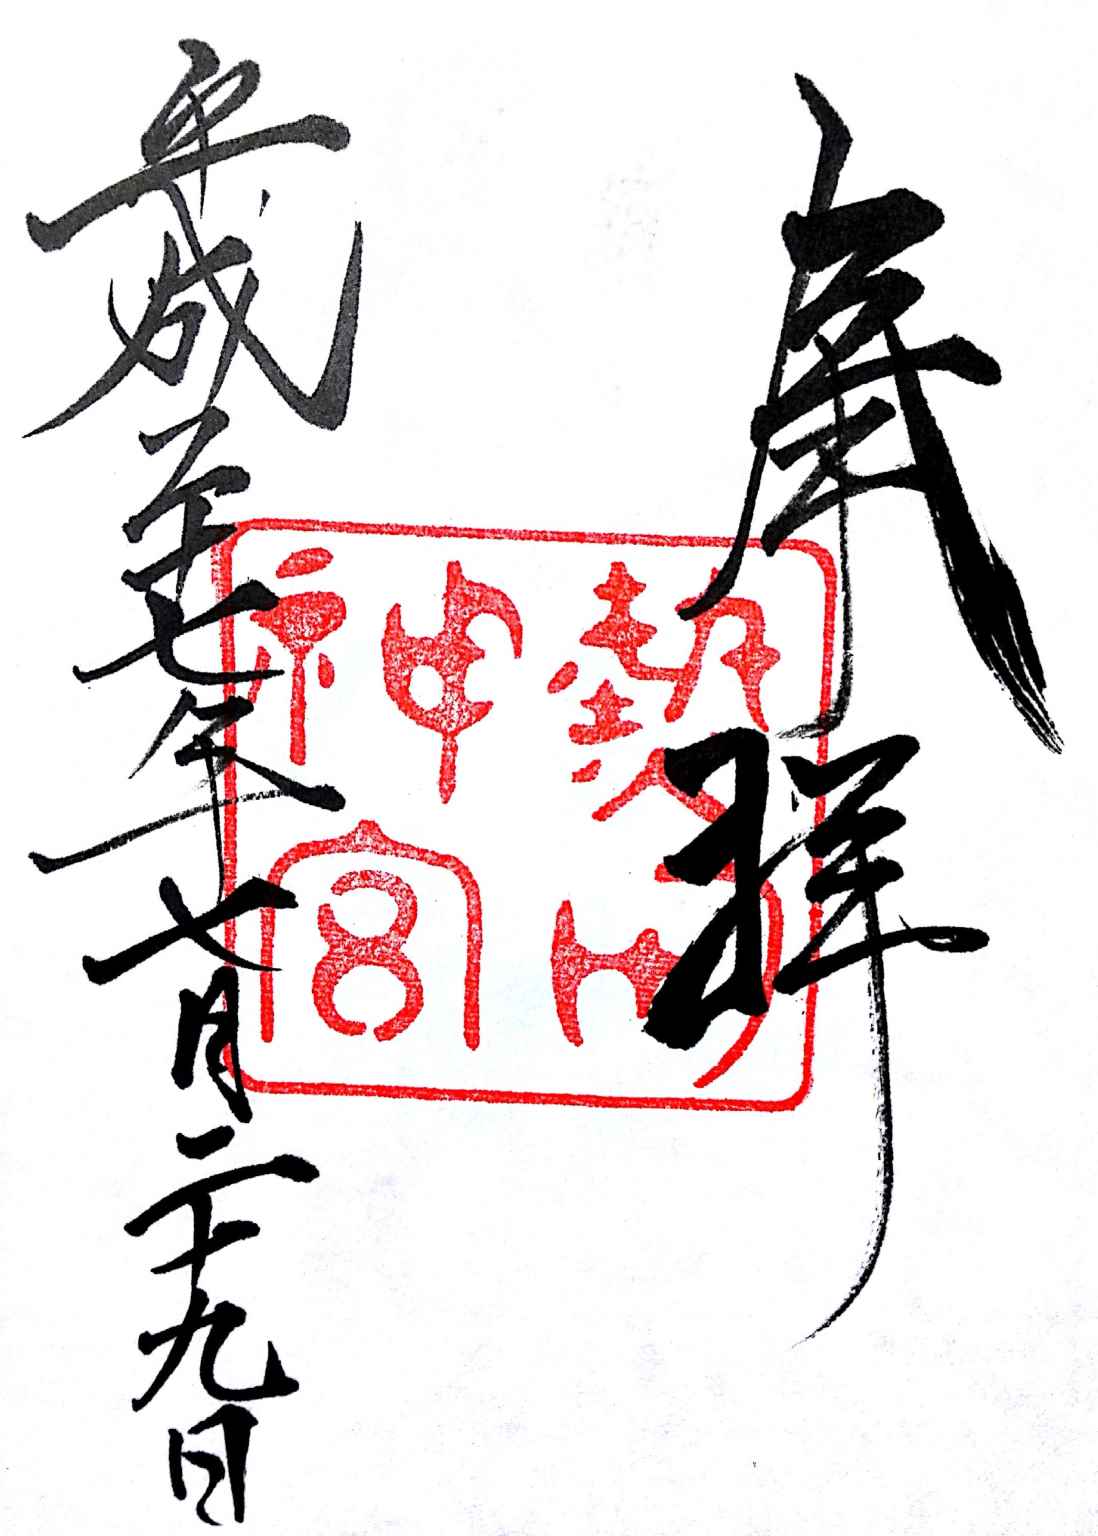 奉拝
熱田神宮
平成二十七年七月二十九日